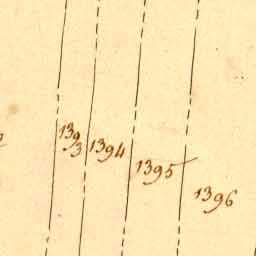 1393
1394
1395
1396